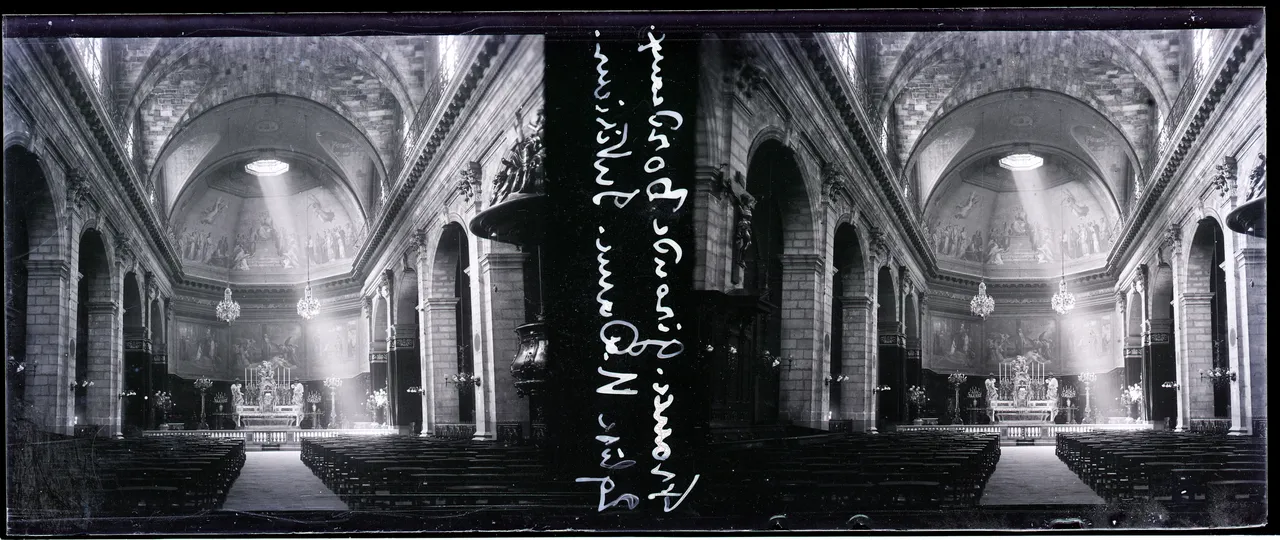 Eglise N. Dame. Intérieur.
France. Gironde. Bordeaux.